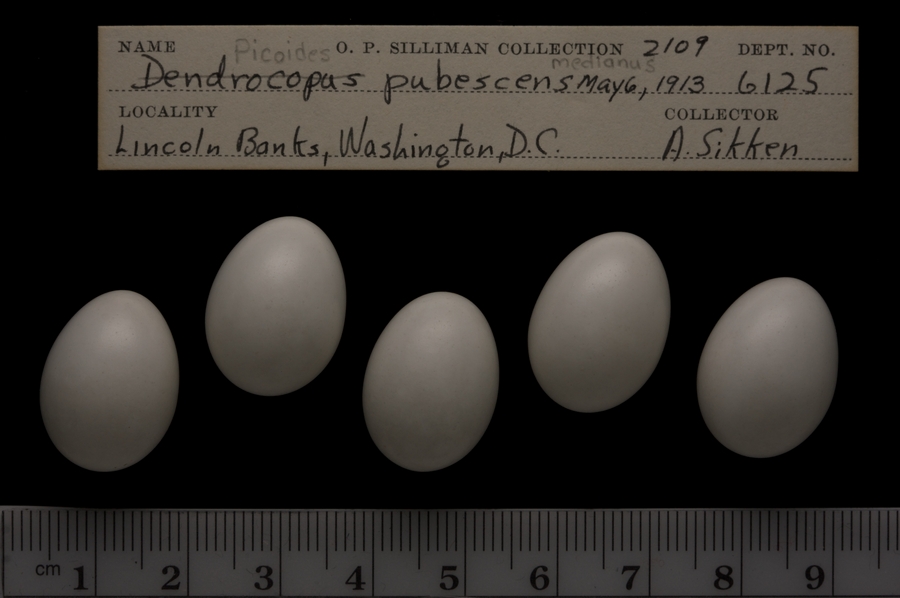 NAME Picoides O. P. SILLIMAN COLLECTION 2109 DEPT. NO.
Dendrocopus pubescens medianus May 6, 1913 6125
LOCALITY COLLECTOR
Lincoln Banks, Washington, D.C. A. Sikken
cm 1 2 3 4 5 6 7 8 9